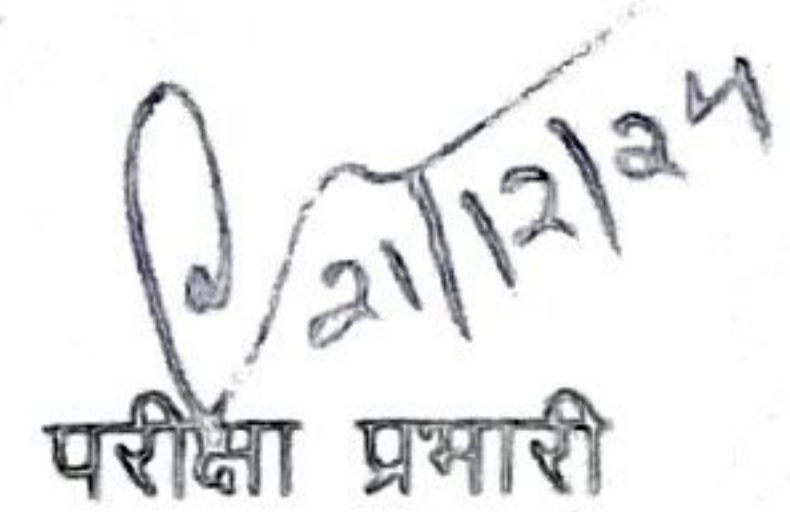 21/12/24
परीक्षा प्रभारी